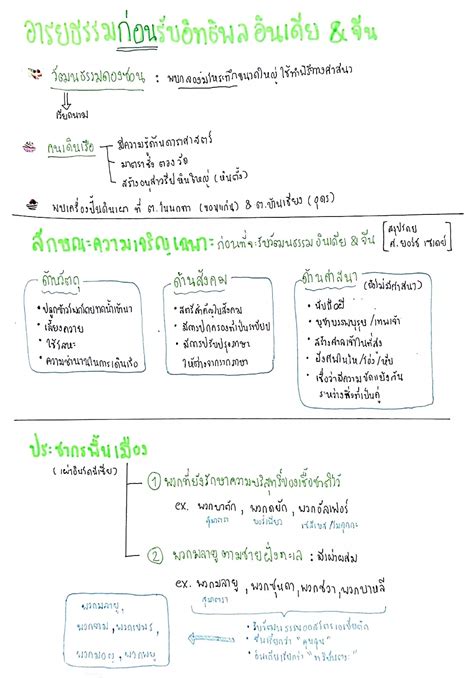 อารยธรรมก่อนรับอิทธิพลอินเดีย & จีน
วัฒนธรรมดองซอน : พบกลองมโหระทึกขนาดใหญ่ ใช้ทำพิธีทางศาสนา
เวียดนาม
คนเดินเรือ
มีความรู้ด้านดาราศาสตร์
มาตราชั่ง ตวง วัด
สร้างอนุสาวรีย์หินใหญ่ (หินตั้ง)
พบเครื่องปั้นดินเผา ที่ ต.โนนนกทา (ขอนแก่น) & ต.บ้านเชียง (อุดร)
ลักษณะความเจริญเฉพาะ ก่อนที่จะรับวัฒนธรรมอินเดีย & จีน
สรุปโดย
ศ. ยอร์จ เซเดย์
ด้านวัตถุ
• ปลูกข้าวโดยทดน้ำเข้านา
• เลี้ยงควาย
• ใช้โลหะ
• ความชำนาญในการเดินเรือ
ด้านสังคม
• สตรีสำคัญในสังคม
• มีการปกครองที่เป็นระเบียบ
• มีการปรับปรุงภาษา
ให้ต่างจากรากภาษา
ด้านศาสนา (ยังไม่มีศาสนา)
• นับถือผี
• บูชาบรรพบุรุษ / เทพเจ้า
• สร้างศาลเจ้าในที่สูง
• ฝังศพในไห / โอ่ง / หิน
• เชื่อว่ามีความขัดแย้งกัน
ระหว่างสิ่งที่เป็นคู่
ประชากรพื้นเมือง
(เผ่าอินโดนีเซีย)
① พวกที่ยังรักษาความบริสุทธิ์ของเชื้อชาติไว้
ex. พวกบาตัก , พวกดยัก , พวกอัลเฟอร์
สุมาตรา บอร์เนียว เซเลเบส / โมลุกกะ
② พวกมลายู ตามชายฝั่งทะเล : มีเผ่าผสม
ex. พวกมลายู , พวกซุนดา , พวกชวา , พวกบาหลี
สุมาตรา
พวกมลายู ,
พวกจาม , พวกเขมร ,
พวกมอญ , พวกพยู
• จีนเรียกว่า "คุนลุน"
• อินเดียเรียกว่า "ทวีปันตระ"